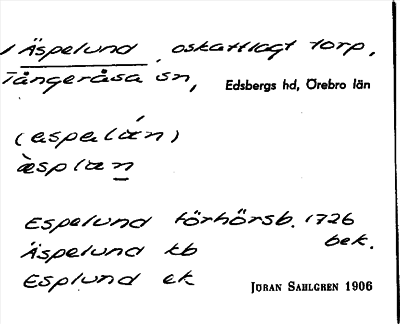 Äspelund, oskattlagt torp,
Tångeråsa sn, Edsbergs hd, Örebro län
(æspəlán)
æ̀splan
Espelund förhörsb. 1726
Äspelund tb bek.
Esplund ek
JÖRAN SAHLGREN 1906